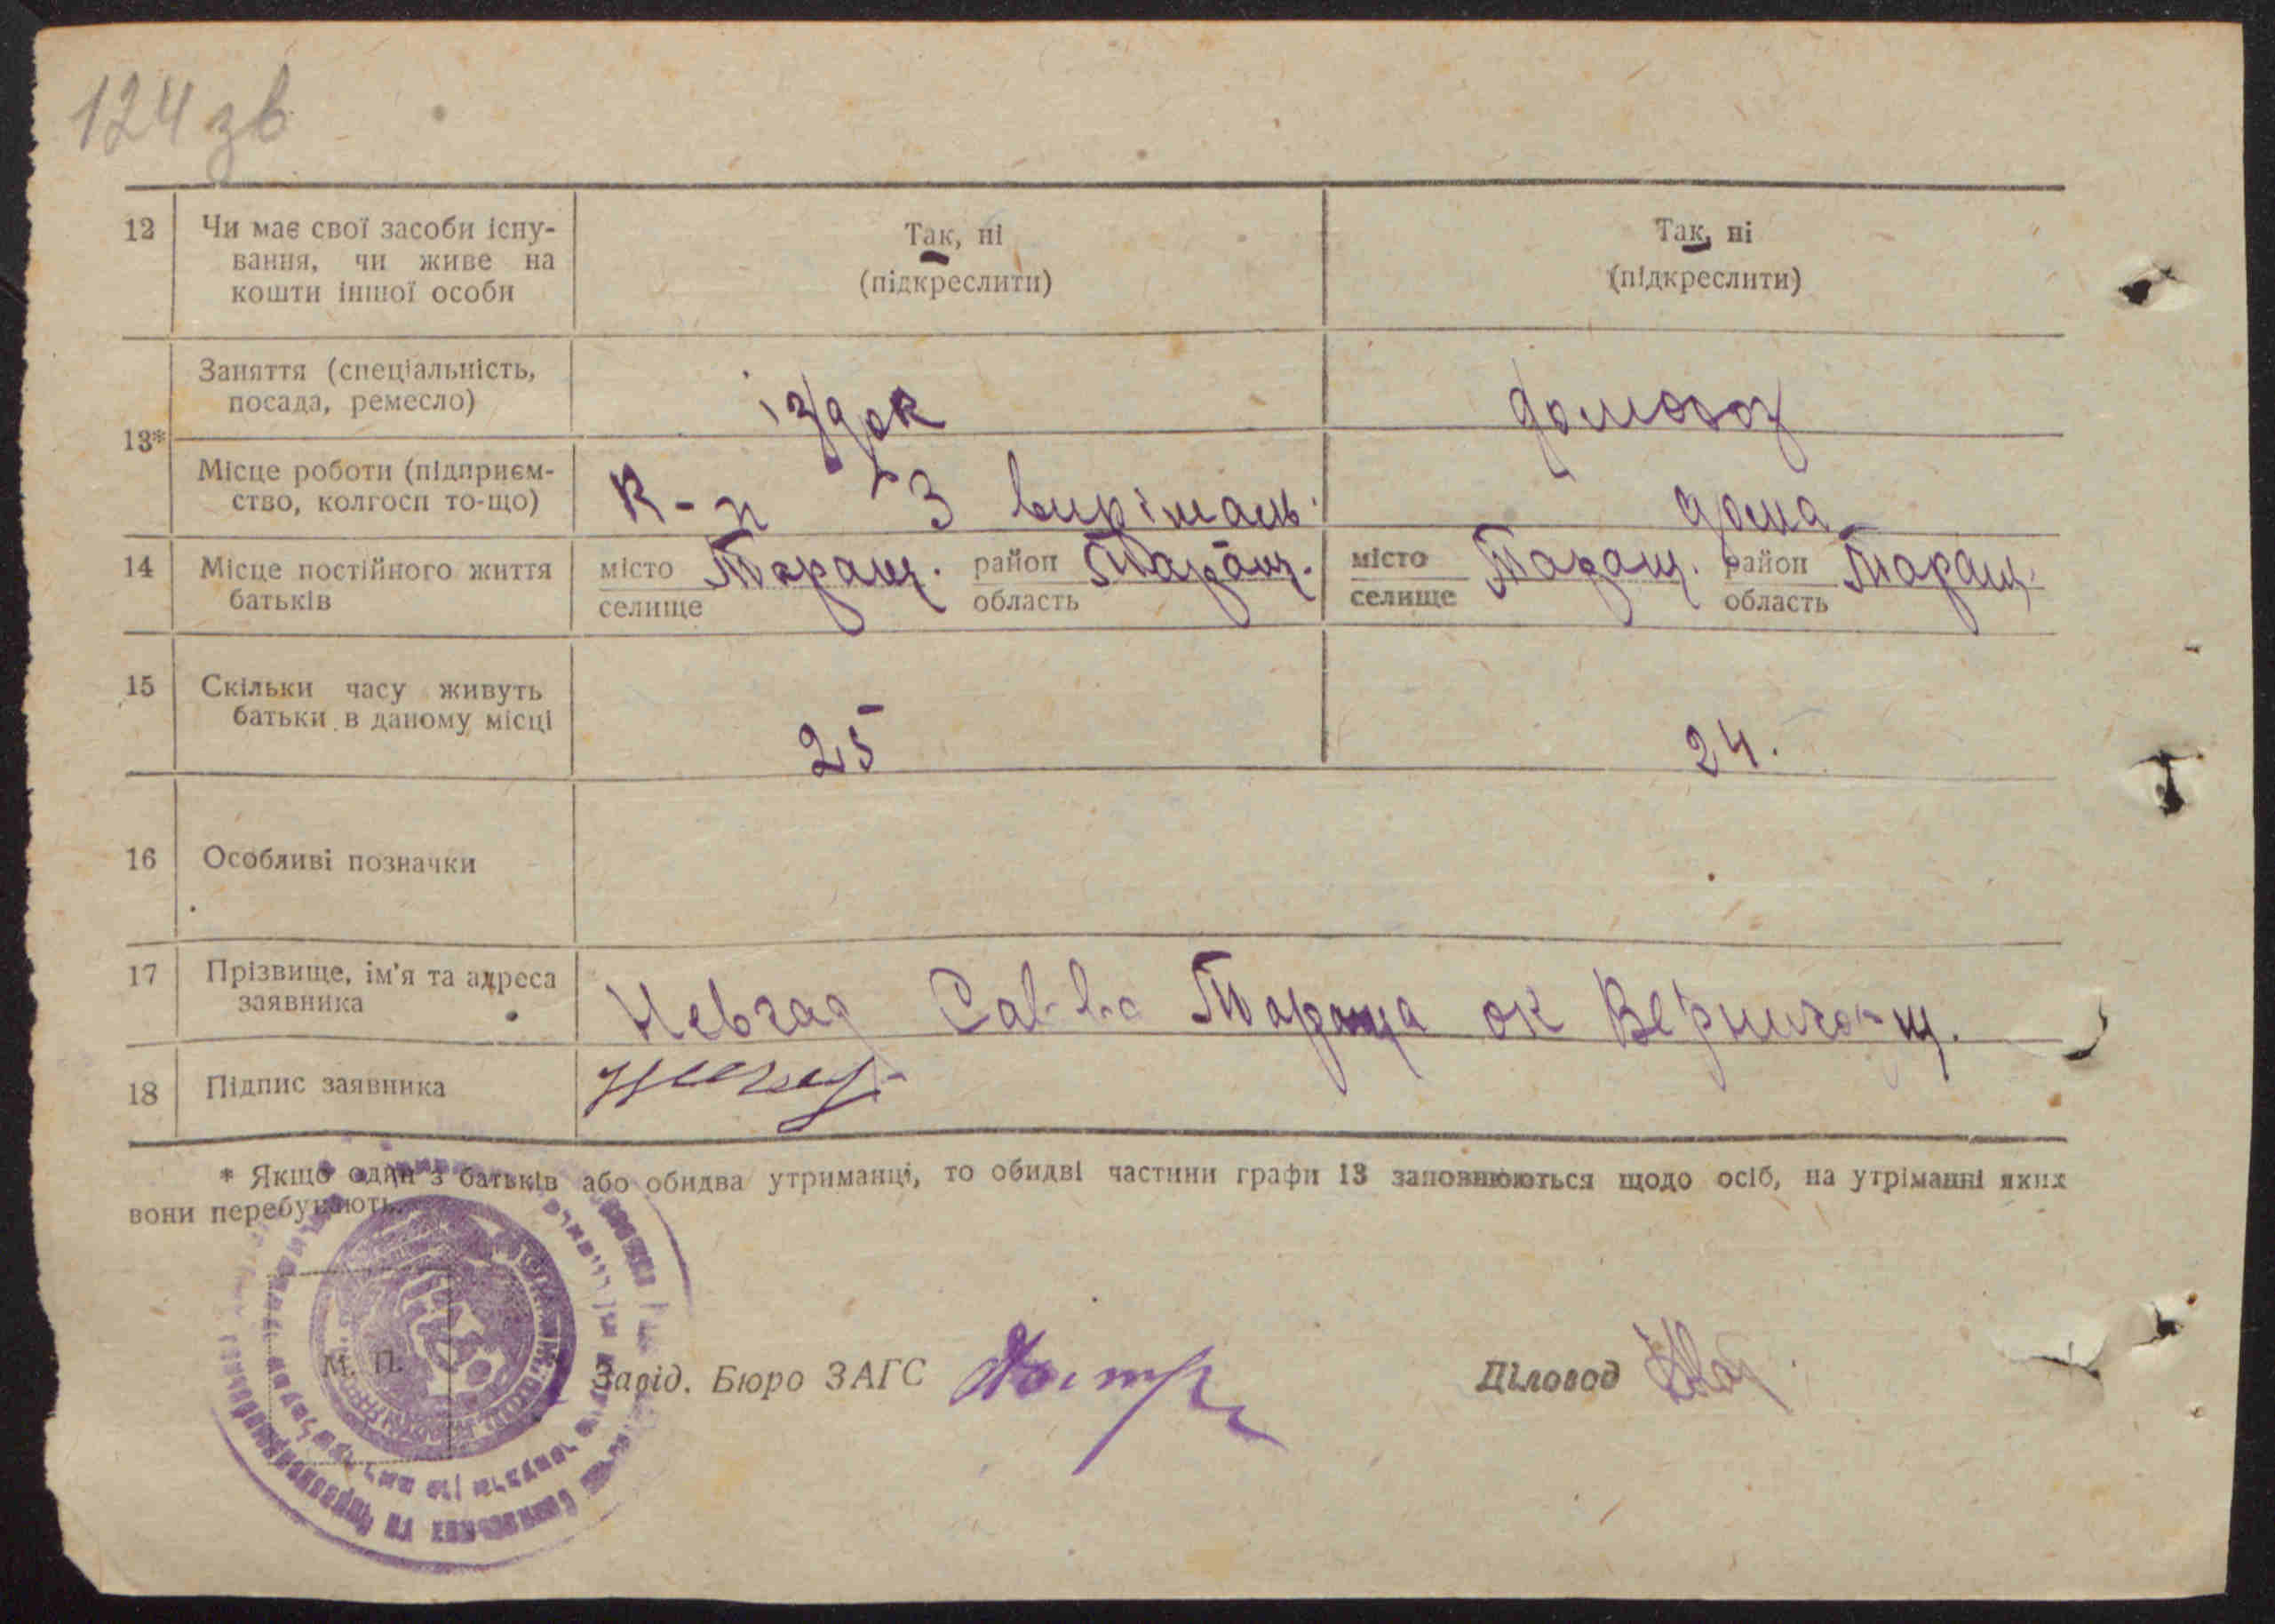 124 зв
12 Чи має свої засоби існу- Так, ні Так, ні
вання, чи живе на (підкреслити) (підкреслити)
кошти іншої особи
Заняття (спеціальність, їздок домогоз
посада, ремесло)
13*
Місце роботи (підприєм- К-п 3 вирішаль. дома
ство, колгосп то-що)
14 Місце постійного життя місто Таращ. район Таращ. місто Таращ. район Таращ.
батьків селище область селище область
15 Скільки часу живуть
батьки в даному місці 25 24.
16 Особливі позначки
17 Прізвище, ім'я та адреса Невгад Савва Тараща ок
заявника
18 Підпис заявника
* Якщо один з батьків або обидва утриманці, то обидві частини графи 13 заповнюються щодо осіб, на утріманні яких
вони перебувають.
М. П.
Завід. Бюро ЗАГС Діловод